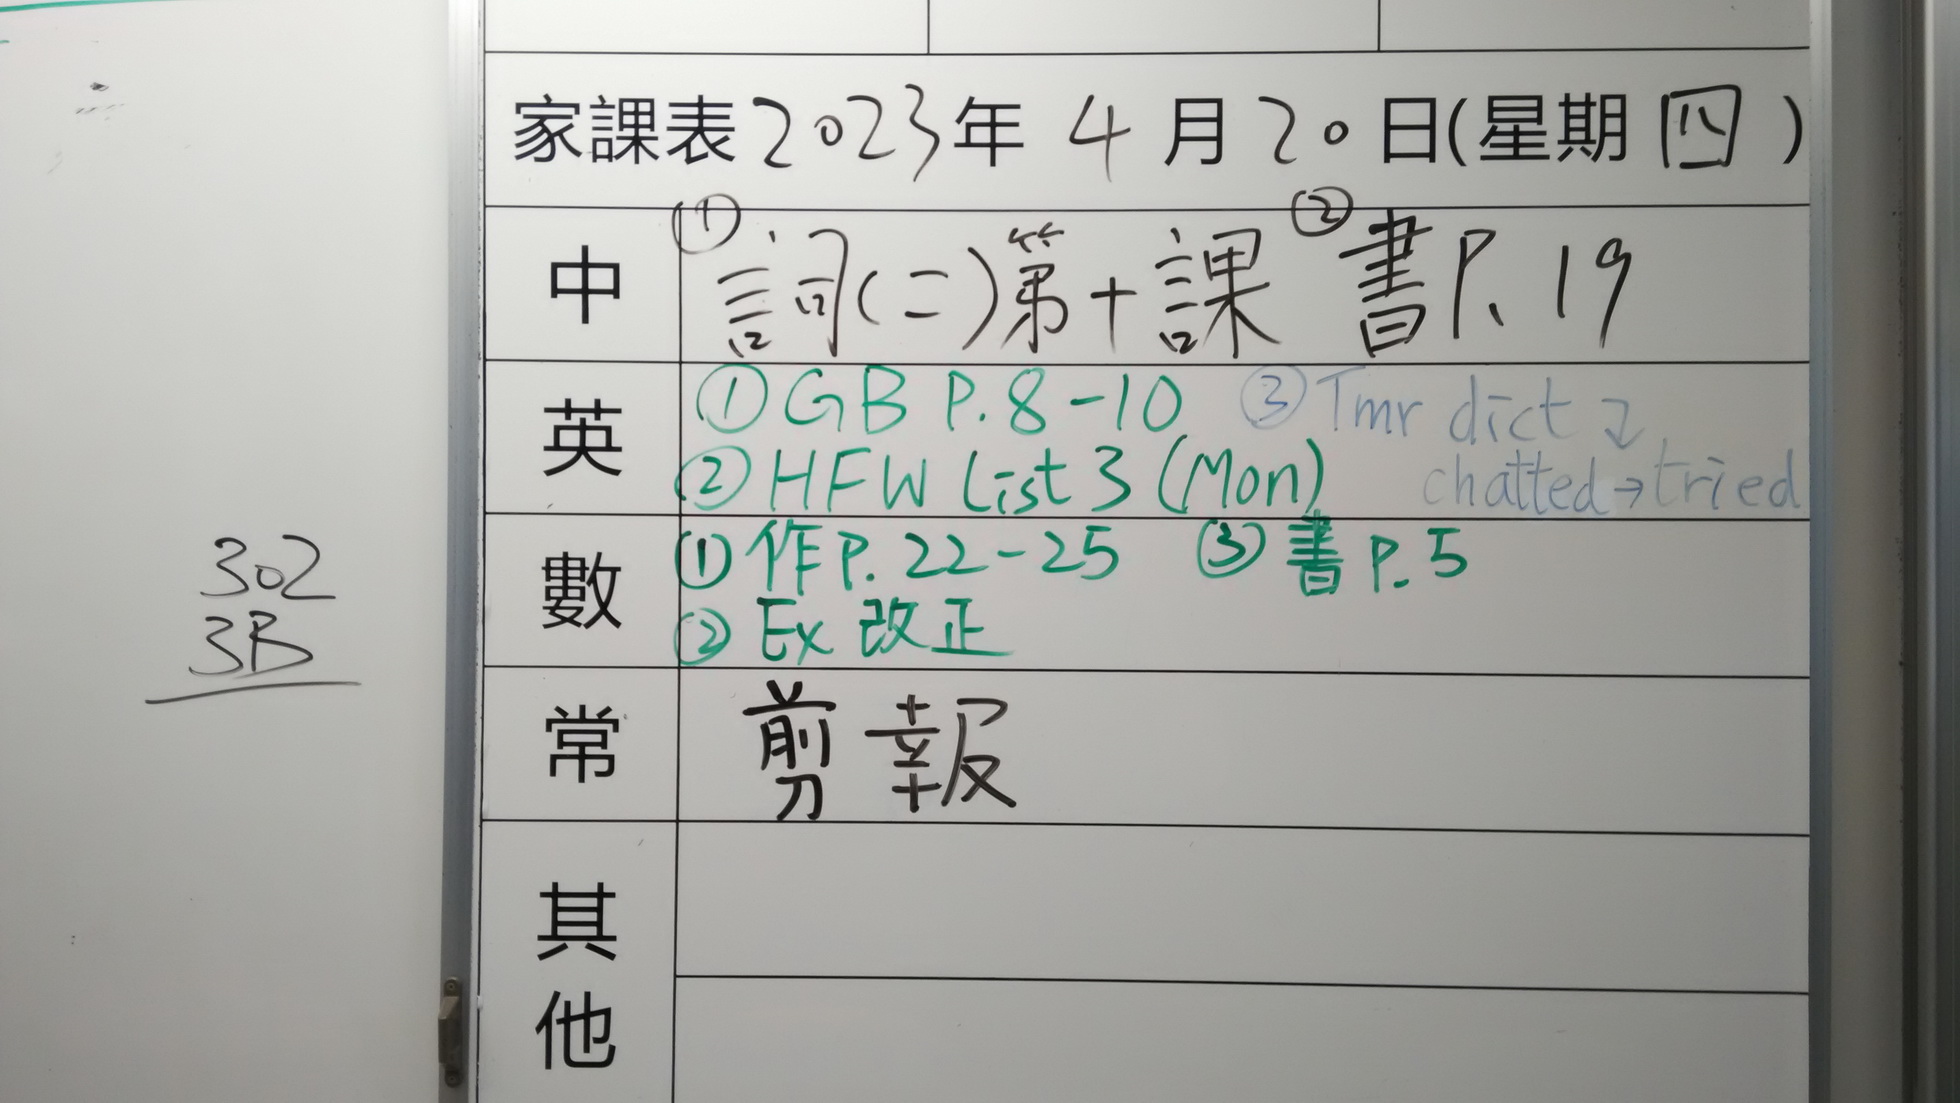 家課表 2023年 4月20日(星期四)
中 ①詞(二)第十課 ②書P.19
英 ①GB P.8-10 ③Tmr dict ↴
②HFW List 3 (Mon) chatted→tried
數 ①作P.22-25 ③書P.5
②Ex 改正
常 剪報
其他
302
3B